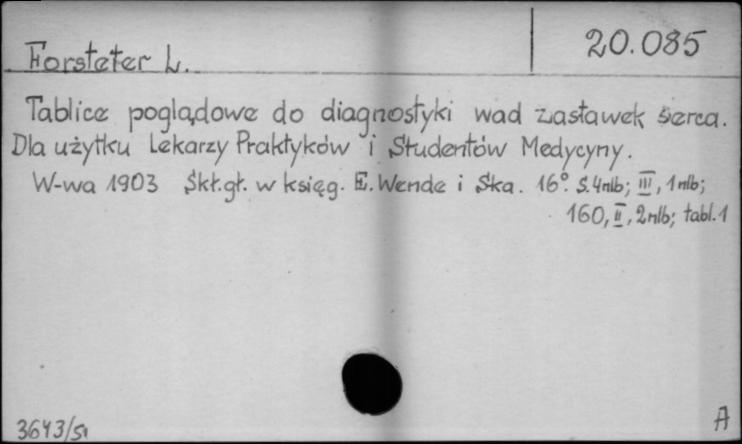 20.085
Forsteter L.
Tablice poglądowe do diagnostyki wad zastawek serca.
Dla użytku Lekarzy Praktyków i Studentów Medycyny.
W-wa 1903 Skł.gł. w księg. E. Wende i Ska. 16°. S. 4nlb; III, 1nlb;
160, II, 2nlb; tabl. 1
3643/51
A